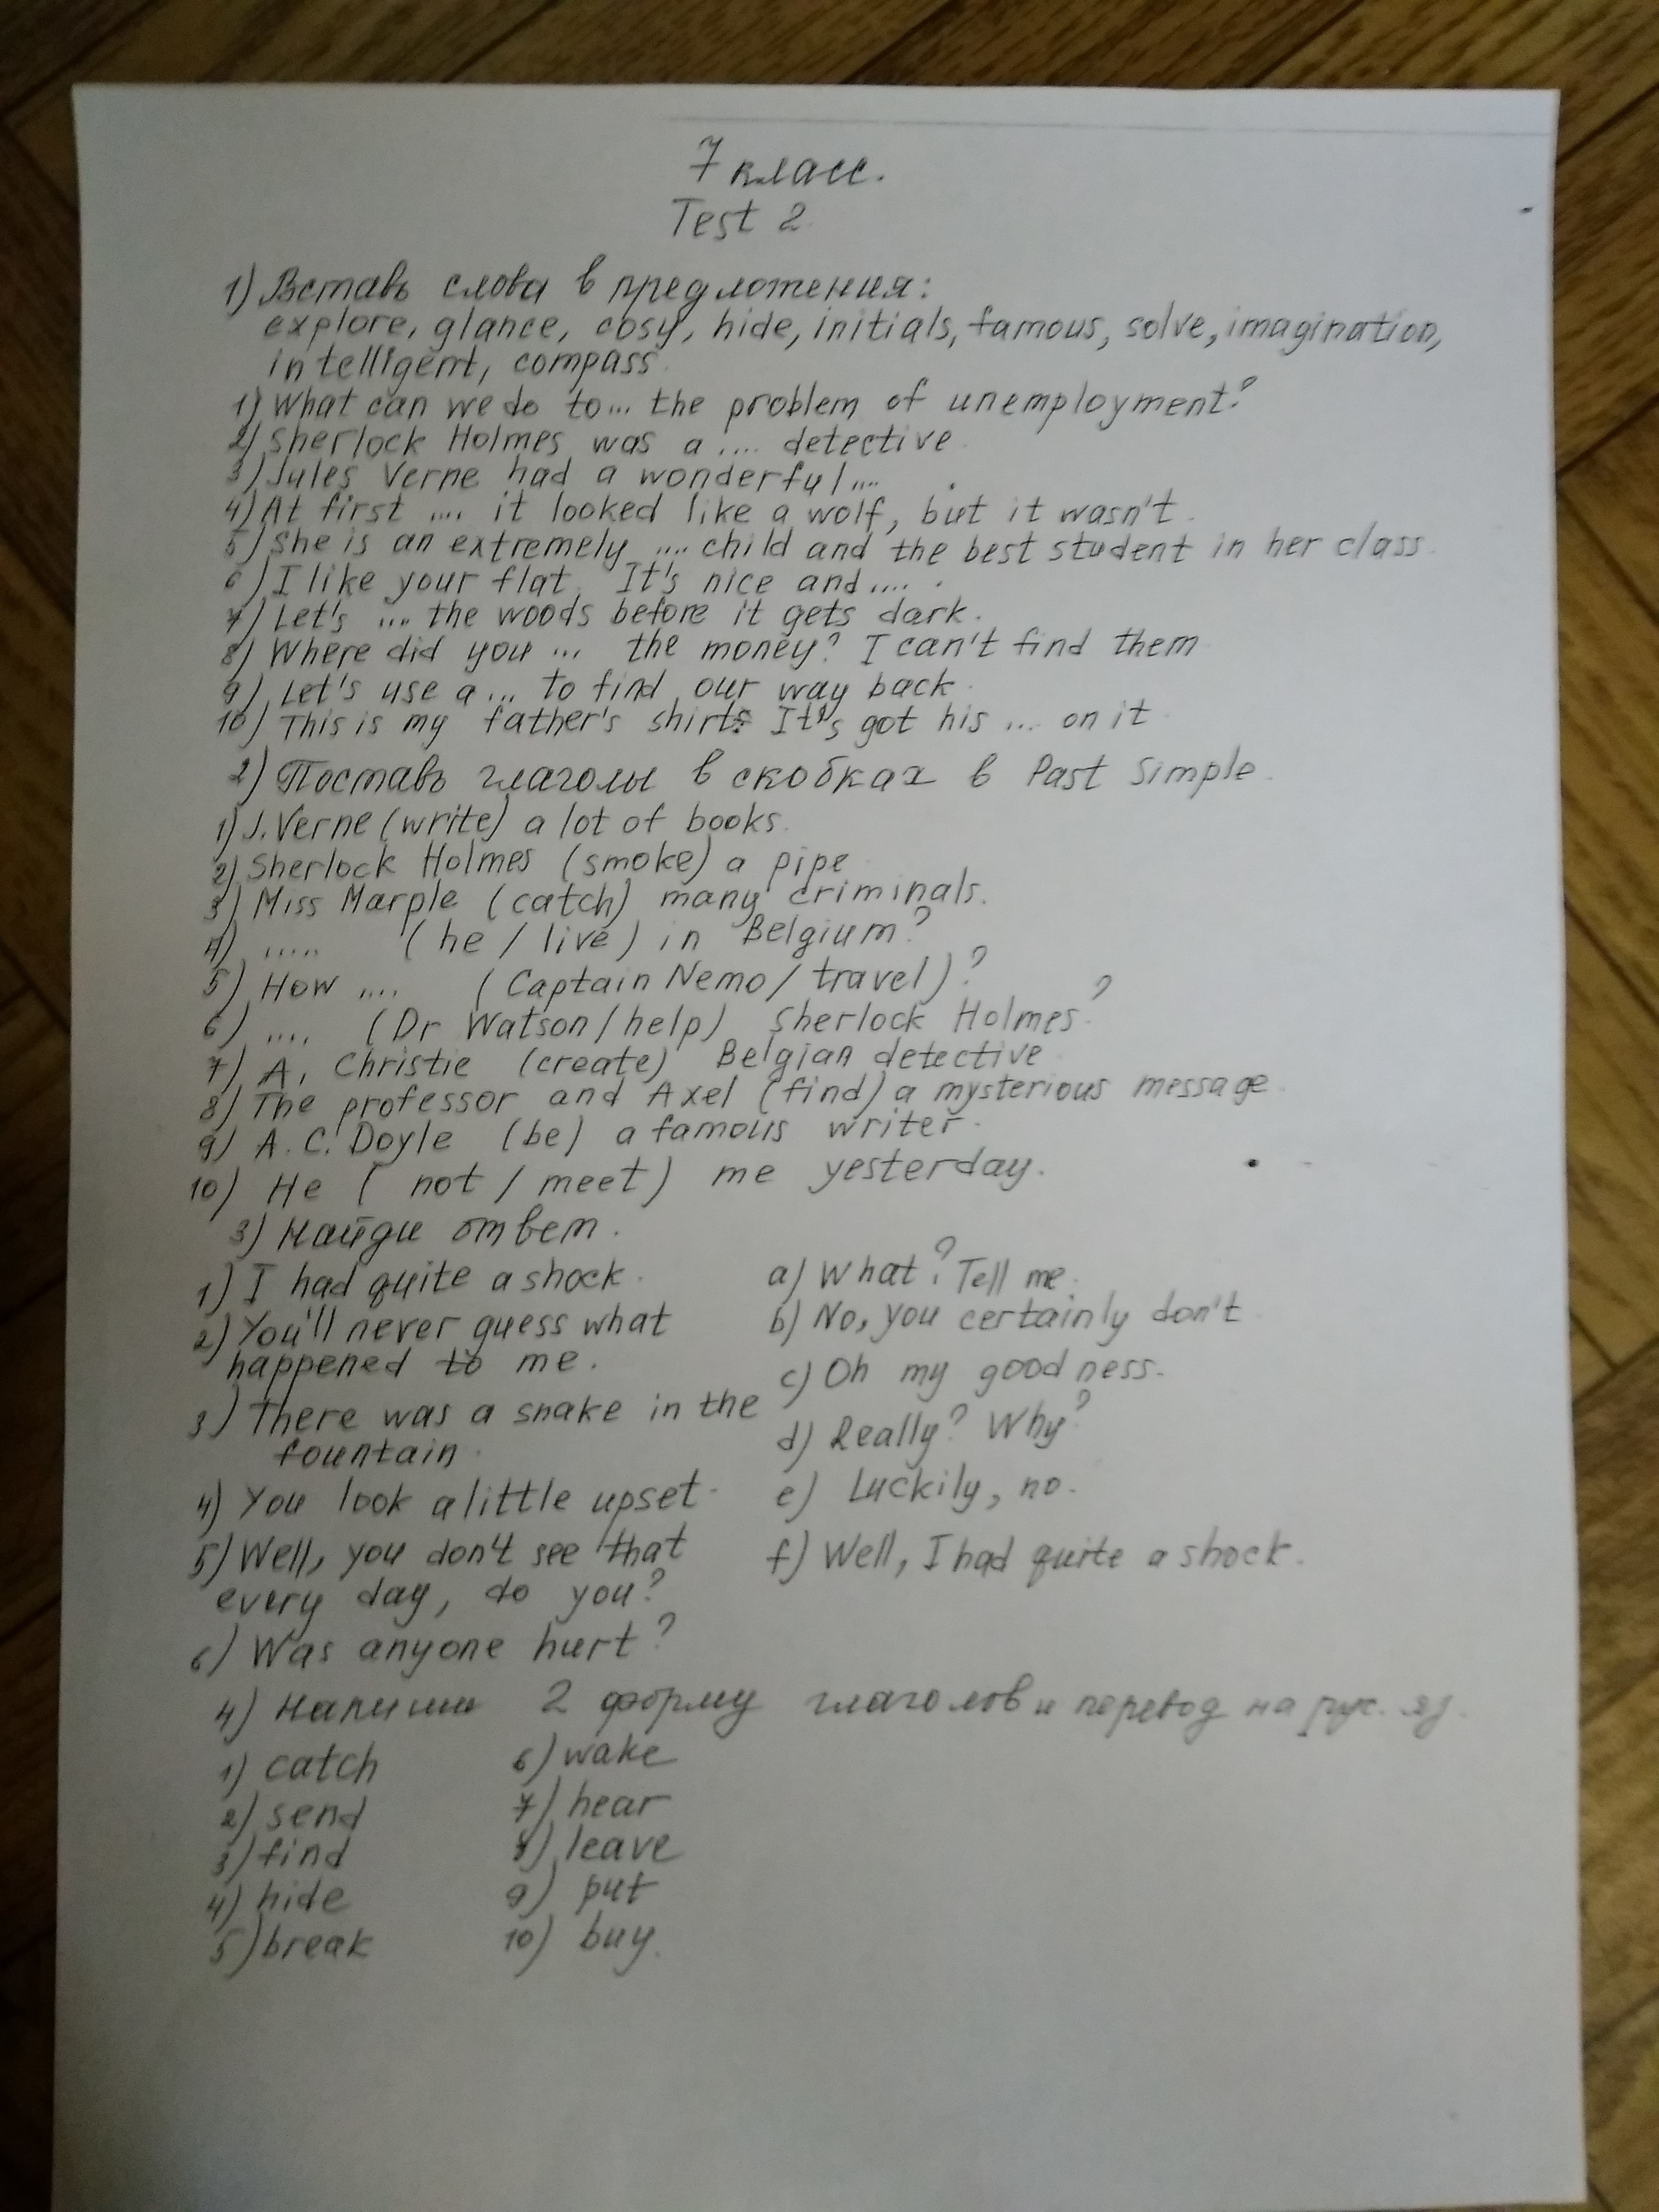 7 класс.
Test 2
1) Вставь слова в предложения:
explore, glance, cosy, hide, initials, famous, solve, imagination,
intelligent, compass
1) What can we do to... the problem of unemployment?
2) Sherlock Holmes was a .... detective
3) Jules Verne had a wonderful....
4) At first .... it looked like a wolf, but it wasn't
5) She is an extremely .... child and the best student in her class
6) I like your flat. It's nice and.... .
7) Let's .... the woods before it gets dark.
8) Where did you ... the money? I can't find them
9) Let's use a... to find our way back
10) This is my father's shirt. It's got his ... on it
2) Поставь глаголы в скобках в Past Simple.
1) J. Verne (write) a lot of books.
2) Sherlock Holmes (smoke) a pipe
3) Miss Marple (catch) many criminals.
4) ..... (he / live) in Belgium?
5) How .... (Captain Nemo / travel)?
6) .... (Dr Watson / help) Sherlock Holmes?
7) A. Christie (create) Belgian detective
8) The professor and Axel (find) a mysterious message.
9) A. C. Doyle (be) a famous writer.
10) He ( not / meet ) me yesterday.
3) Найди ответ.
1) I had quite a shock. a) What? Tell me.
2) You'll never guess what b) No, you certainly don't
happened to me. c) Oh my goodness.
3) There was a snake in the d) Really? Why?
fountain.
4) You look a little upset. e) Luckily, no.
5) Well, you don't see that f) Well, I had quite a shock.
every day, do you?
6) Was anyone hurt?
4) Напиши 2 форму глаголов и перевод на рус. яз.
1) catch 6) wake
2) send 7) hear
3) find 8) leave
4) hide 9) put
5) break 10) buy.